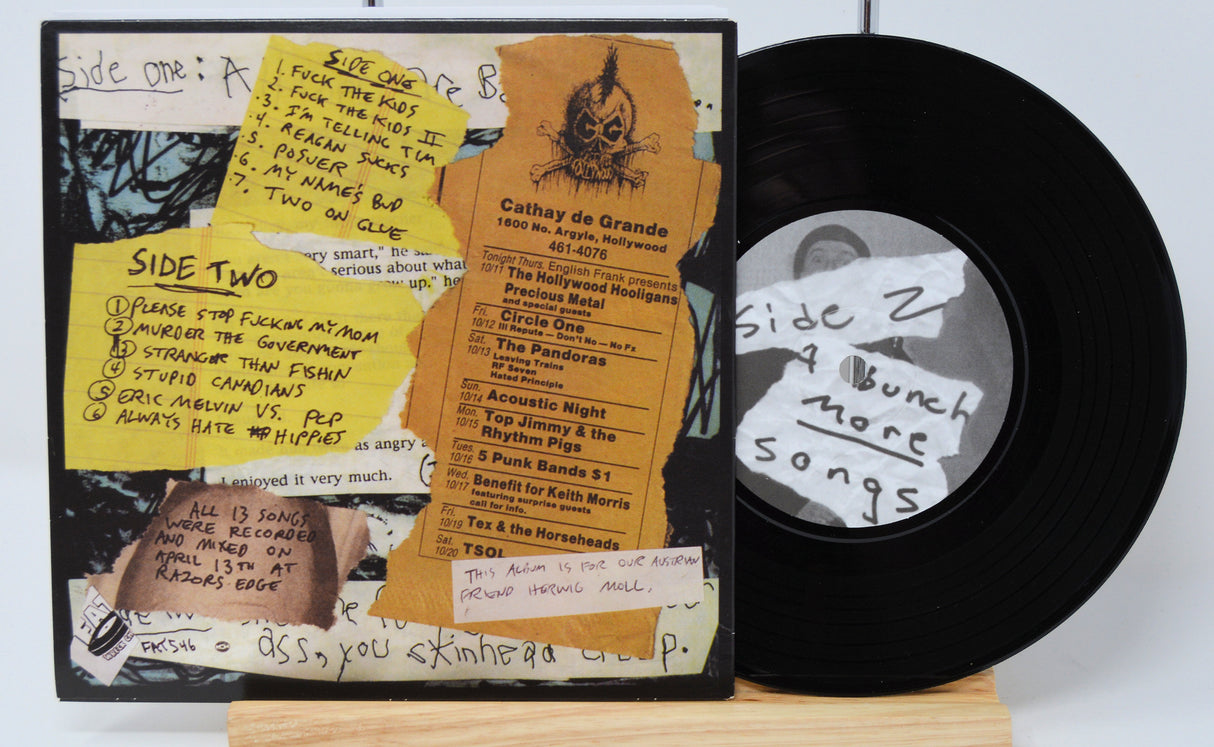 Side one: A
SIDE ONE
1. FUCK THE KIDS
2. FUCK THE KIDS II
3. I'M TELLING TIM
4. REAGAN SUCKS
5. POSUER
6. MY NAME'S BUD
7. TWO ON GLUE
ery smart," he
serious about what
up." he
SIDE TWO
1 PLEASE STOP FUCKING MY MOM
2 MURDER THE GOVERNMENT
3 STRANGER THAN FISHIN
4 STUPID CANADIANS
5 ERIC MELVIN VS. PCP
6 ALWAYS HATE HIPPIES
as angry
I enjoyed it very much.
ALL 13 SONGS
WERE RECORDED
AND MIXED ON
APRIL 13TH AT
RAZORS EDGE
FAT
FAT546
ass, you skinhead
Cathay de Grande
1600 No. Argyle, Hollywood
461-4076
Tonight Thurs. English Frank presents
10/11 The Hollywood Hooligans
Precious Metal
and special guests
Fri. 10/12 Circle One
Ill Repute — Don't No — No Fx
Sat. 10/13 The Pandoras
Leaving Trains
RF Seven
Hated Principle
Sun. 10/14 Acoustic Night
Mon. 10/15 Top Jimmy & the
Rhythm Pigs
Tues. 10/16 5 Punk Bands $1
Wed. 10/17 Benefit for Keith Morris
featuring surprise guests
call for info.
Fri. 10/19 Tex & the Horseheads
Sat. 10/20 TSOL
THIS ALBUM IS FOR OUR AUSTRIAN
FRIEND HERWIG MOLL.
side 2
A bunch
more
songs